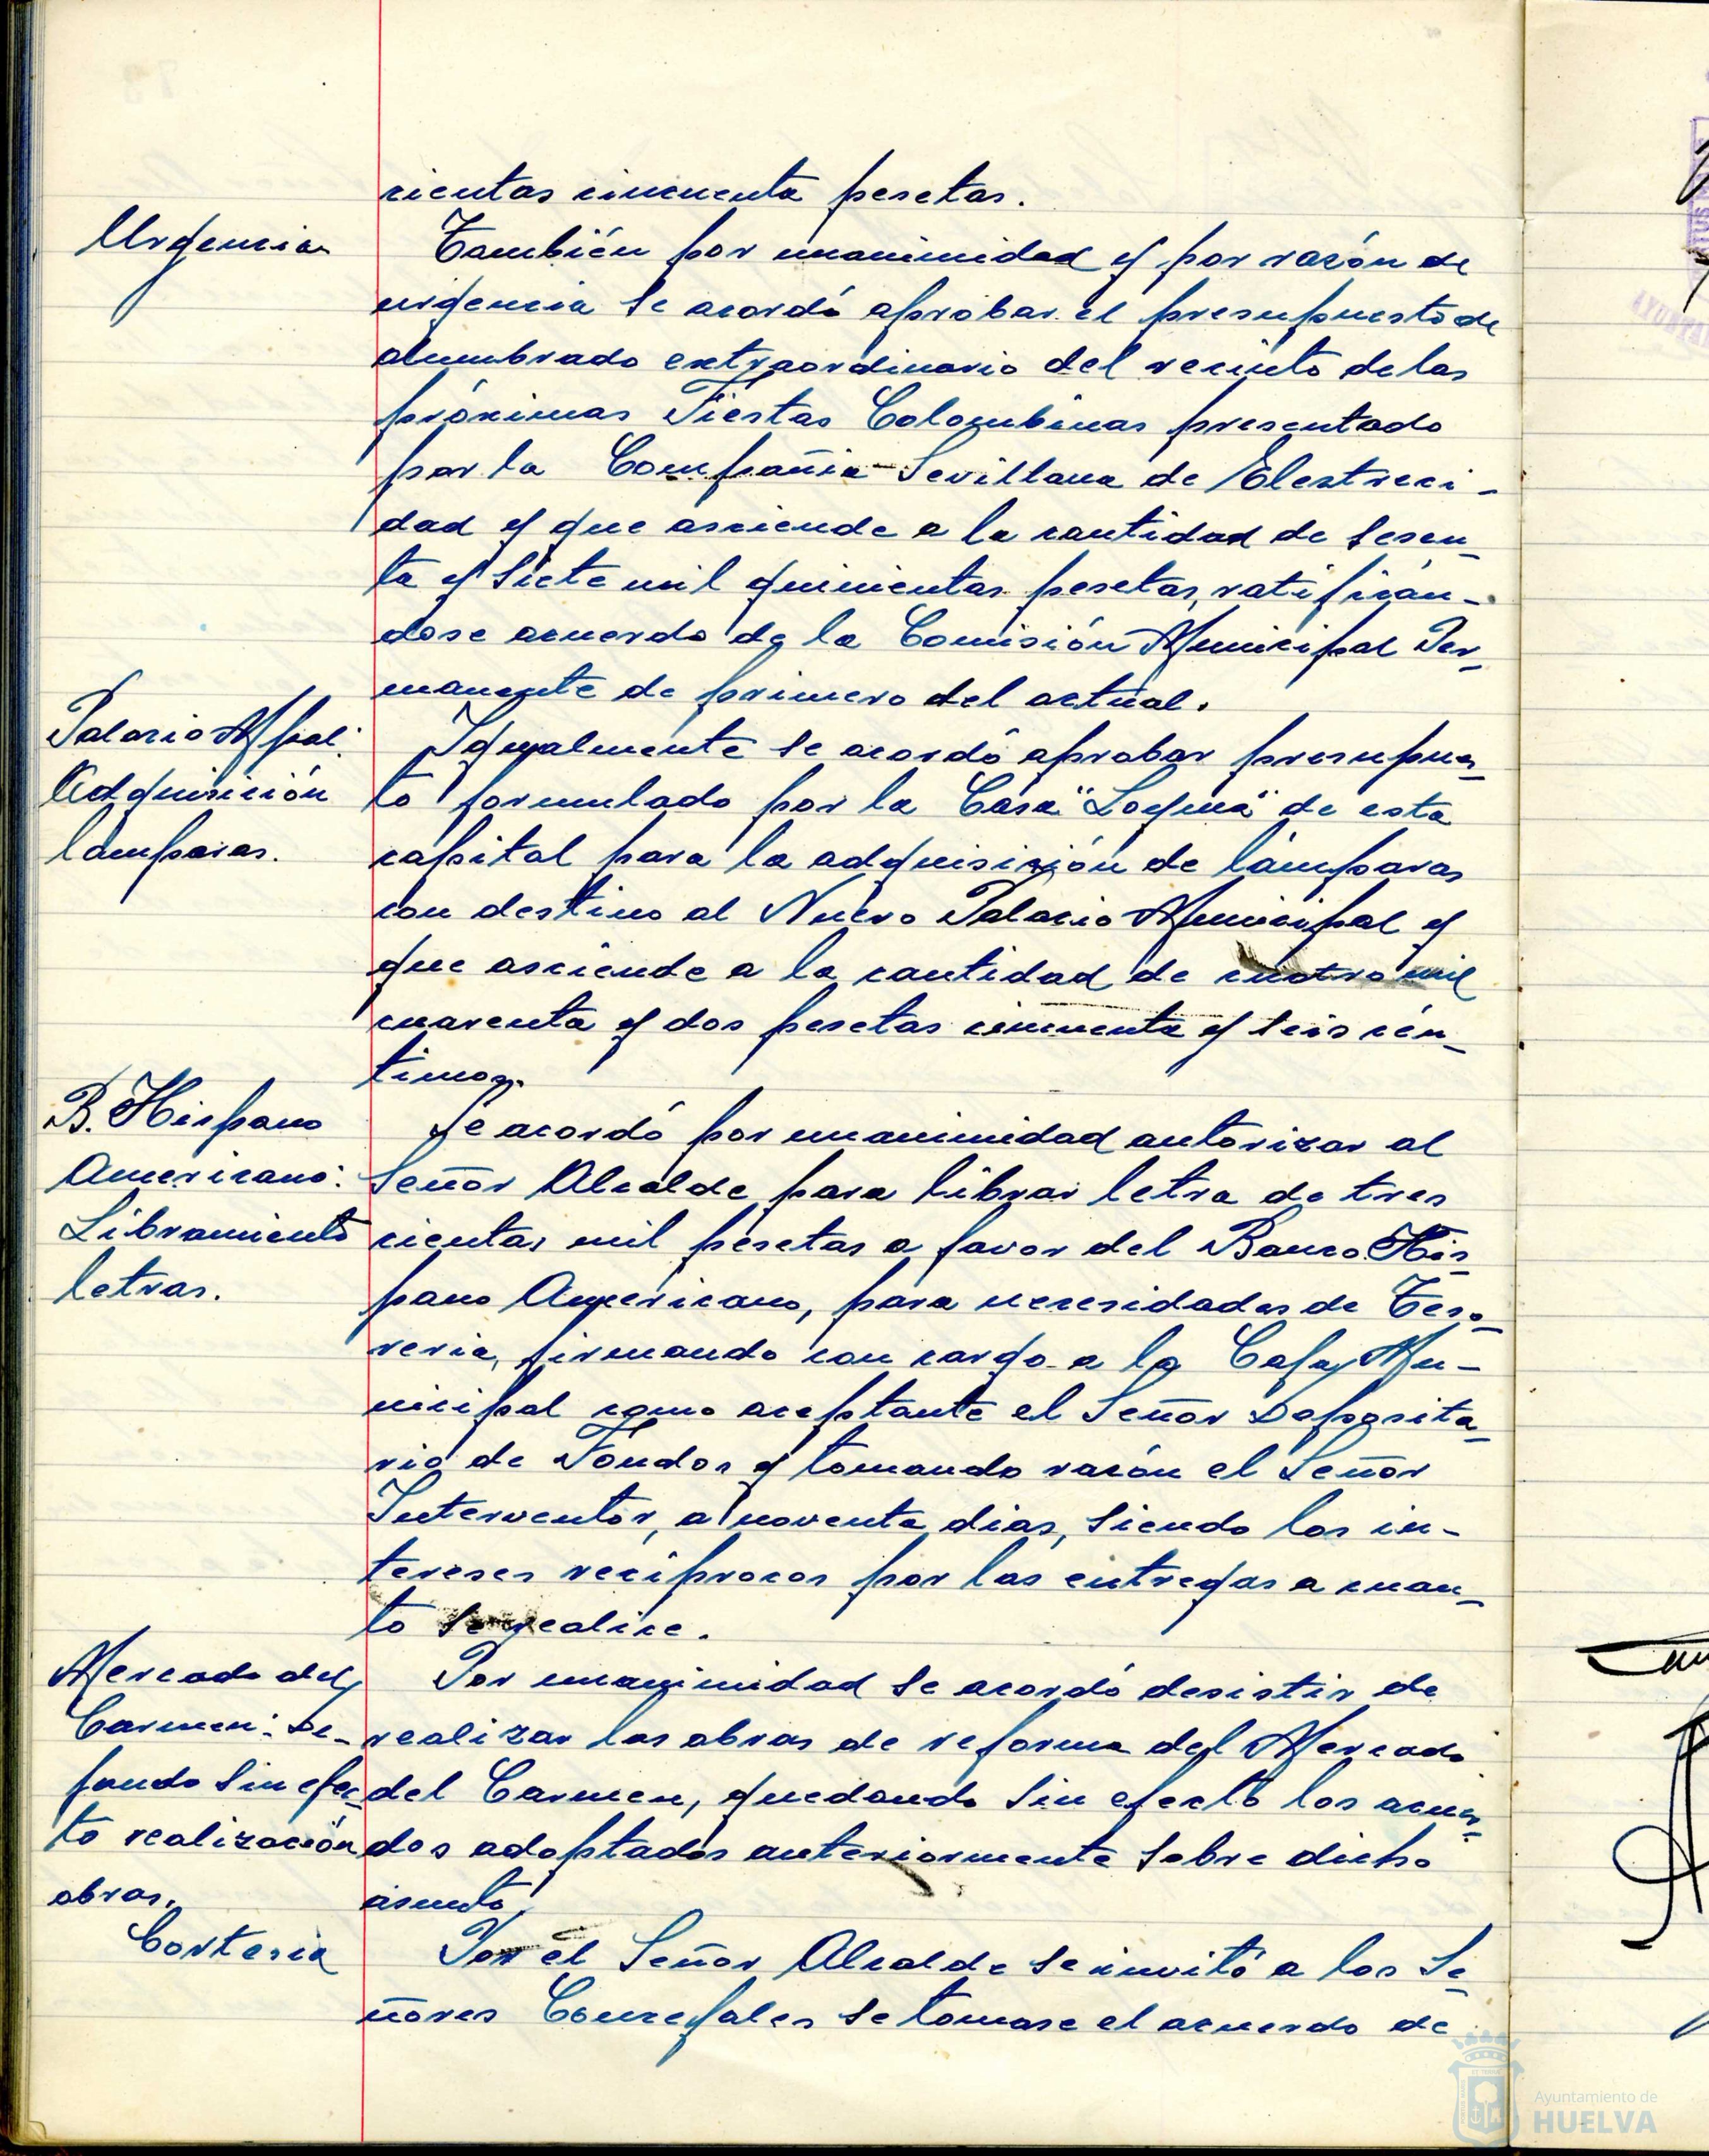 cientas cincuenta pesetas.
Urgencia
También por unanimidad y por razón de
urgencia se acordó aprobar el presupuesto de
alumbrado extraordinario del recinto de las
próximas Fiestas Colombinas presentado
por la Compañia Sevillana de Electrici-
dad y que asciende a la cantidad de sesen-
ta y siete mil quinientas pesetas, ratificán-
dose acuerdo de la Comisión Municipal Per-
manente de primero del actual.
Palacio Mpal:
Adquisición
lamparas.
Igualmente se acordó aprobar presupues-
to formulado por la Casa "Loyma" de esta
capital para la adquisición de lámparas
con destino al Nuevo Palacio Municipal y
que asciende a la cantidad de cuatro mil
cuarenta y dos pesetas cincuenta y seis cén-
timos.
B. Hispano
Americano:
Libramiento
letras.
Se acordó por unanimidad autorizar al
Señor Alcalde para librar letra de tres
cientas mil pesetas a favor del Banco His-
pano Americano, para necesidades de Teso-
reria, firmando con cargo a la Caja Mu-
nicipal como aceptante el Señor Deposita-
rio de Fondos y tomando razón el Señor
Interventor, a noventa dias, siendo los in-
tereses reciprocos por las entregas a cuan-
to se realice.
Mercado del
Carmen: De-
jando sin efec-
to realización
obras.
Por unanimidad se acordó desistir de
realizar las obras de reforma del Mercado
del Carmen, quedando sin efecto los acuer-
dos adoptados anteriormente sobre dicho
asunto.
Cortesia
Por el Señor Alcalde se invitó a los Se-
ñores Concejales se tomase el acuerdo de
Ayuntamiento de
HUELVA